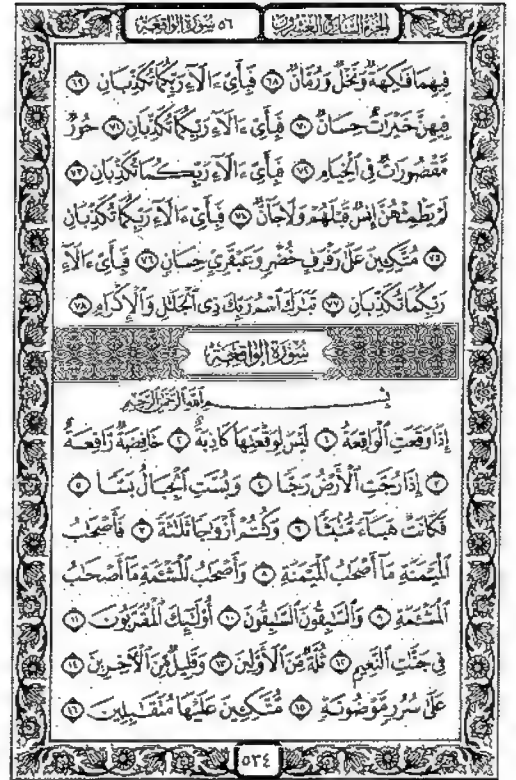 الجزء السابع والعشرون ٥٦ سورة الواقعة
فِيهِمَا فَٰكِهَةٌ وَنَخْلٌ وَرُمَّانٌ ٦٨ فَبِأَيِّ ءَالَآءِ رَبِّكُمَا تُكَذِّبَانِ ٦٩
فِيهِنَّ خَيْرَٰتٌ حِسَانٌ ٧٠ فَبِأَيِّ ءَالَآءِ رَبِّكُمَا تُكَذِّبَانِ ٧١ حُورٌ
مَّقْصُورَٰتٌ فِى ٱلْخِيَامِ ٧٢ فَبِأَيِّ ءَالَآءِ رَبِّكُمَا تُكَذِّبَانِ ٧٣
لَمْ يَطْمِثْهُنَّ إِنسٌ قَبْلَهُمْ وَلَا جَآنٌّ ٧٤ فَبِأَيِّ ءَالَآءِ رَبِّكُمَا تُكَذِّبَانِ
٧٥ مُتَّكِـِٔينَ عَلَىٰ رَفْرَفٍ خُضْرٍ وَعَبْقَرِىٍّ حِسَانٍ ٧٦ فَبِأَيِّ ءَالَآءِ
رَبِّكُمَا تُكَذِّبَانِ ٧٧ تَبَٰرَكَ ٱسْمُ رَبِّكَ ذِى ٱلْجَلَٰلِ وَٱلْإِكْرَامِ ٧٨
سُورَةُ الوَاقِعَةِ
بِسْمِ ٱللَّهِ ٱلرَّحْمَٰنِ ٱلرَّحِيمِ
إِذَا وَقَعَتِ ٱلْوَاقِعَةُ ١ لَيْسَ لِوَقْعَتِهَا كَاذِبَةٌ ٢ خَافِضَةٌ رَّافِعَةٌ
٣ إِذَا رُجَّتِ ٱلْأَرْضُ رَجًّا ٤ وَبُسَّتِ ٱلْجِبَالُ بَسًّا ٥
فَكَانَتْ هَبَآءً مُّنۢبَثًّا ٦ وَكُنتُمْ أَزْوَٰجًا ثَلَٰثَةً ٧ فَأَصْحَٰبُ
ٱلْمَيْمَنَةِ مَآ أَصْحَٰبُ ٱلْمَيْمَنَةِ ٨ وَأَصْحَٰبُ ٱلْمَشْـَٔمَةِ مَآ أَصْحَٰبُ
ٱلْمَشْـَٔمَةِ ٩ وَٱلسَّٰبِقُونَ ٱلسَّٰبِقُونَ ١٠ أُو۟لَٰٓئِكَ ٱلْمُقَرَّبُونَ ١١
فِى جَنَّٰتِ ٱلنَّعِيمِ ١٢ ثُلَّةٌ مِّنَ ٱلْأَوَّلِينَ ١٣ وَقَلِيلٌ مِّنَ ٱلْـَٔاخِرِينَ ١٤
عَلَىٰ سُرُرٍ مَّوْضُونَةٍ ١٥ مُّتَّكِـِٔينَ عَلَيْهَا مُتَقَٰبِلِينَ ١٦
٥٣٤